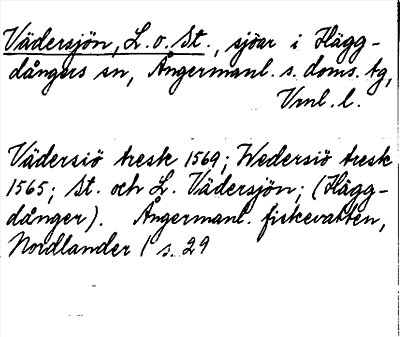 Vädersjön, L. o. St., sjöar i Hägg-
dångers sn, Ångermanl. s. doms. tg,
Vrnl. l.
Vädersiö tresk 1569; Wedersiö tresk
1565; St. och L. Vädersjön; (Hägg-
dånger). Ångermanl. fiskevatten,
Nordlander / s. 29